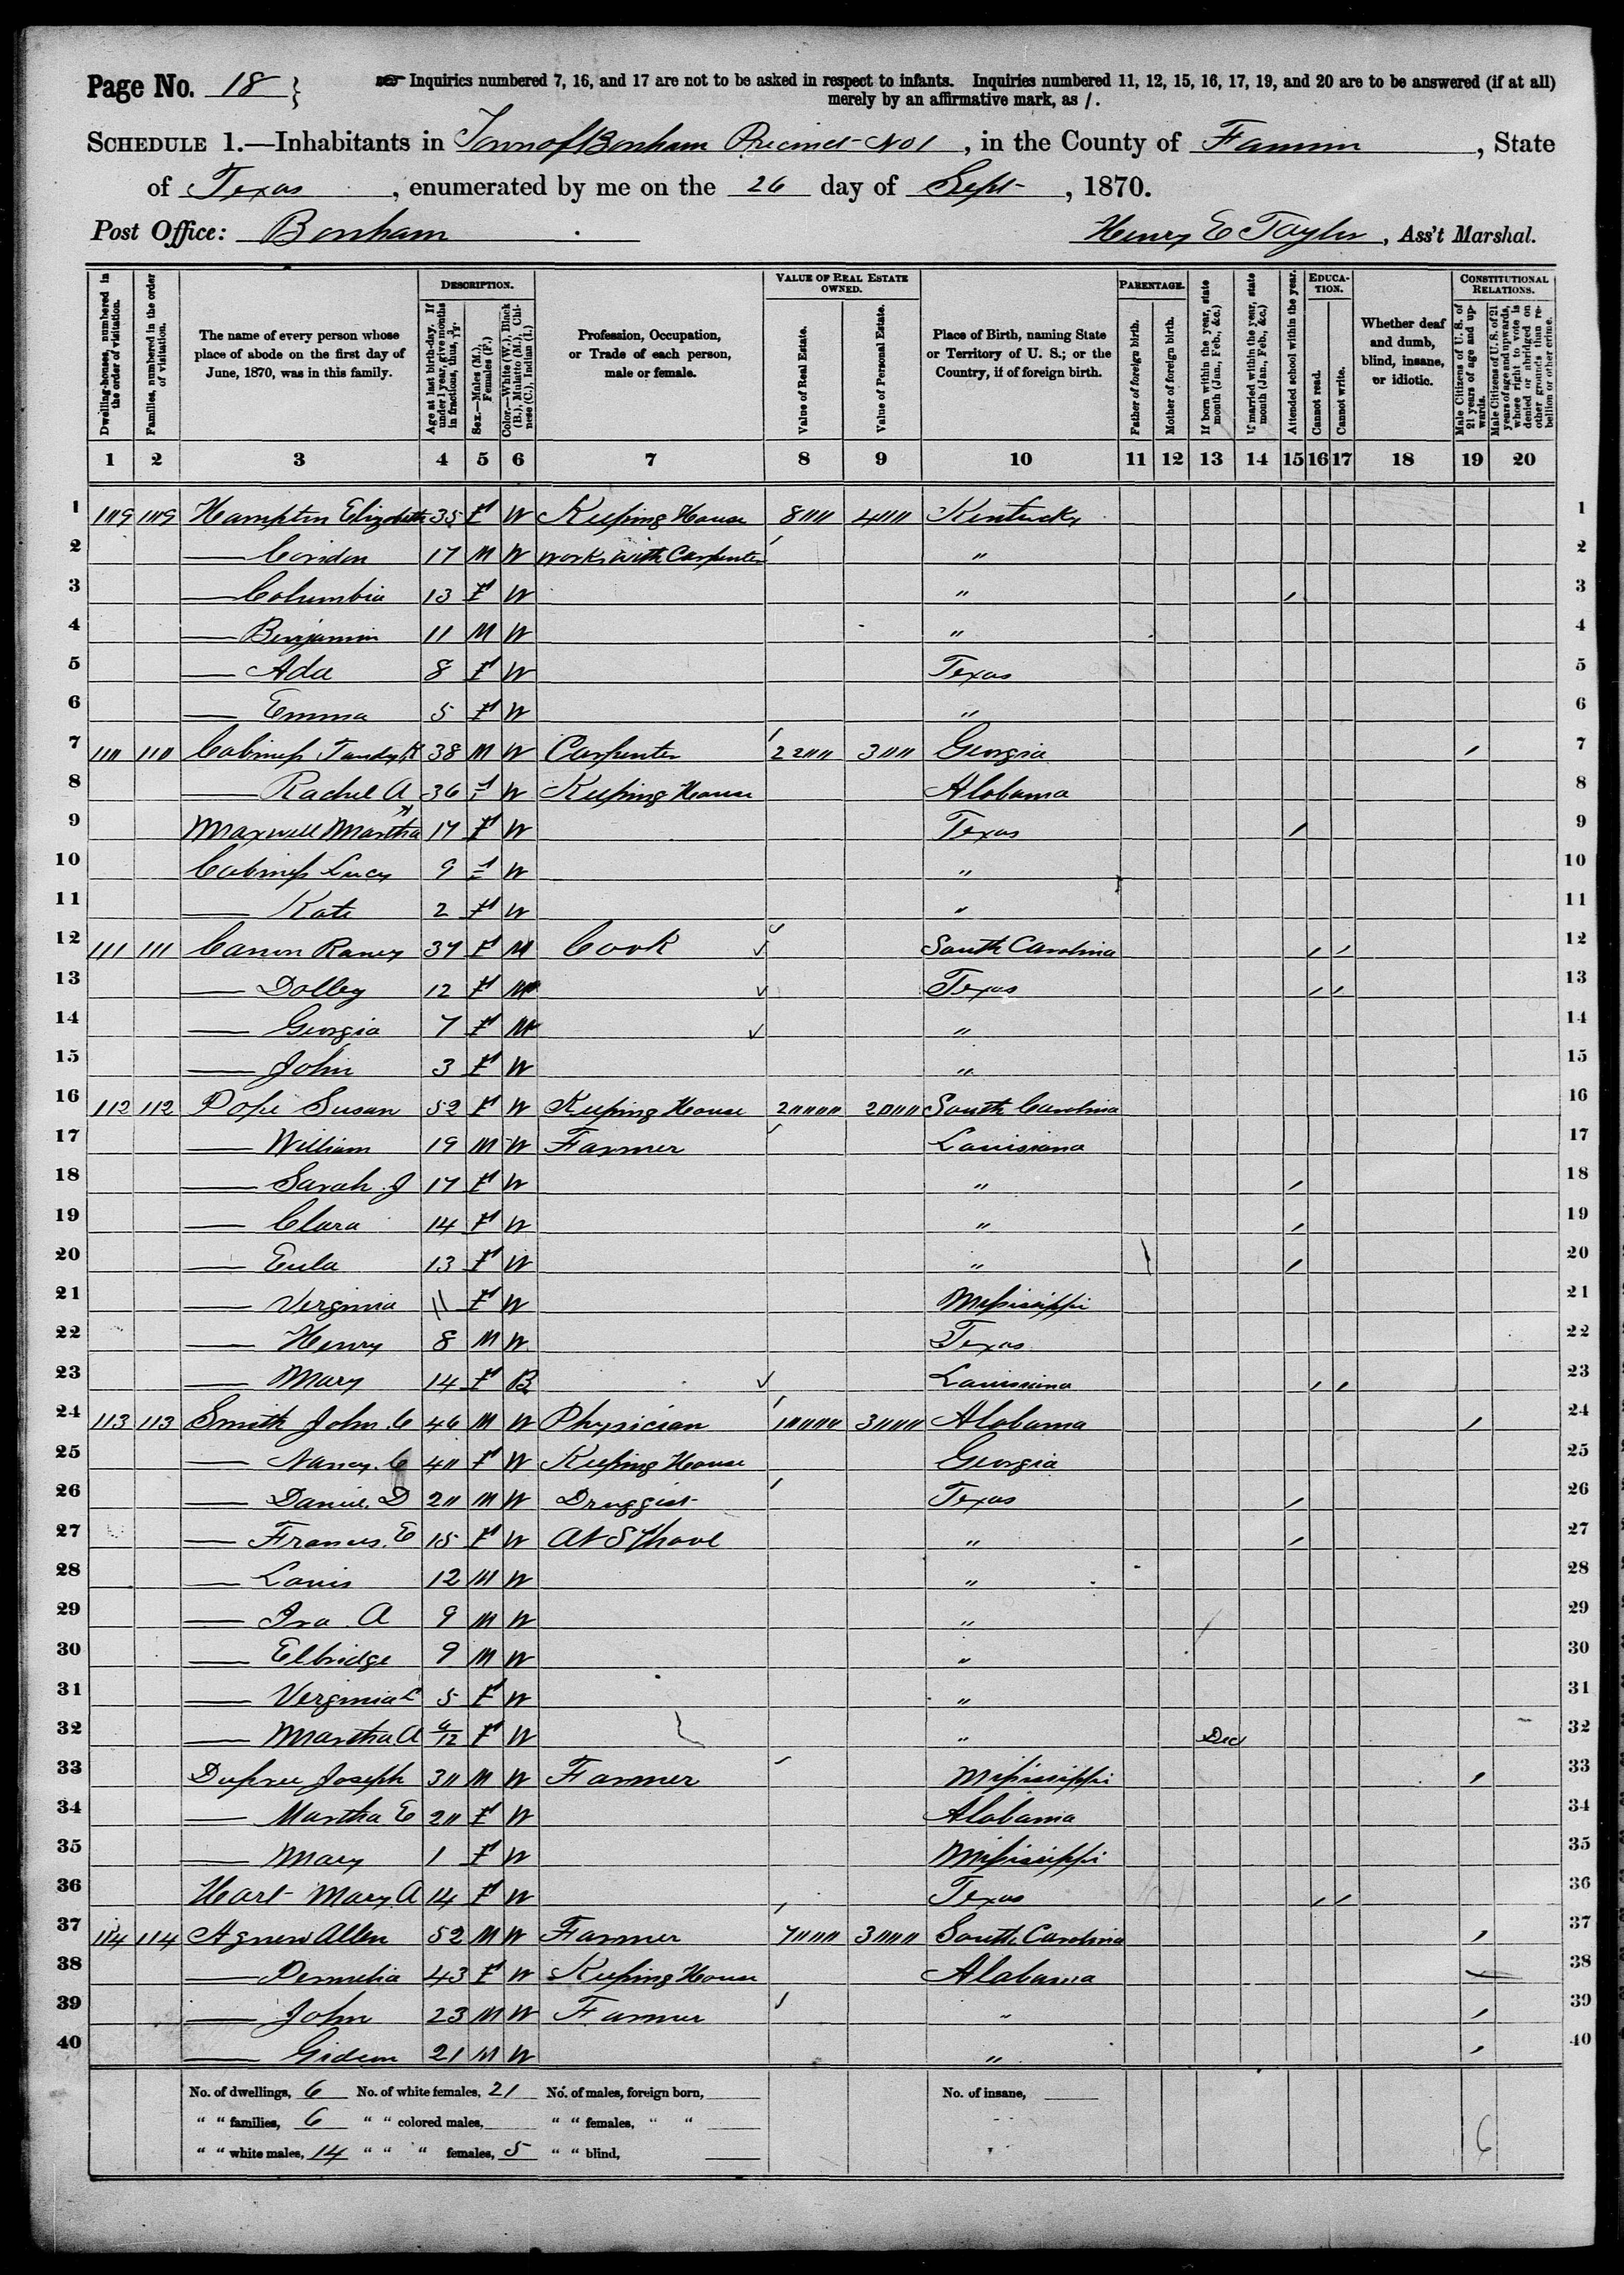 Page No. 18 } Inquiries numbered 7, 16, and 17 are not to be asked in respect to infants. Inquiries numbered 11, 12, 15, 16, 17, 19, and 20 are to be answered (if at all)
merely by an affirmative mark, as /.
SCHEDULE 1.—Inhabitants in Town of Bonham Precinct No 1, in the County of Fannin, State
of Texas, enumerated by me on the 26 day of Sept, 1870.
Post Office: Bonham Henry E Taylor, Ass't Marshal.
Dwelling-houses, numbered in the order of visitation.
Families, numbered in the order of visitation.
The name of every person whose place of abode on the first day of June, 1870, was in this family.
DESCRIPTION.
Age at last birth-day. If under 1 year, give months in fractions, thus, 3/12.
Sex.—Males (M.), Females (F.)
Color.—White (W.), Black (B.), Mulatto (M.), Chinese (C.), Indian (I.)
Profession, Occupation, or Trade of each person, male or female.
VALUE OF REAL ESTATE OWNED.
Value of Real Estate.
Value of Personal Estate.
Place of Birth, naming State or Territory of U. S.; or the Country, if of foreign birth.
PARENTAGE.
Father of foreign birth.
Mother of foreign birth.
If born within the year, state month (Jan., Feb., &c.)
If married within the year, state month (Jan., Feb., &c.)
Attended school within the year.
EDUCATION.
Cannot read.
Cannot write.
Whether deaf and dumb, blind, insane, or idiotic.
CONSTITUTIONAL RELATIONS.
Male Citizens of U. S. of 21 years of age and upwards.
Male Citizens of U. S. of 21 years of age and upwards, where right to vote is denied or abridged on other grounds than rebellion or other crime.
1 2 3 4 5 6 7 8 9 10 11 12 13 14 15 16 17 18 19 20
1 109 109 Hampton Elizabeth 35 F W Keeping House 800 400 Kentucky 1
2 — Coridon 17 M W Works with Carpenter " 2
3 — Columbia 13 F W " / 3
4 — Benjamin 11 M W " 4
5 — Ada 8 F W Texas 5
6 — Emma 5 F W " 6
7 110 110 Cabiness Tandy K 38 M W Carpenter 2200 300 Georgia / 7
8 — Rachel A 36 F W Keeping House Alabama 8
9 Maxwell Martha 17 F W Texas / 9
10 Cabiness Lucy 9 F W " 10
11 — Kate 2 F W " 11
12 111 111 Canon Raney 37 F M Cook South Carolina / / 12
13 — Dolley 12 F M Texas / / 13
14 — Georgia 7 F M " 14
15 — John 3 F W " 15
16 112 112 Pope Susan 52 F W Keeping House 20000 2000 South Carolina 16
17 — William 19 M W Farmer Louisiana 17
18 — Sarah J 17 F W " / 18
19 — Clara 14 F W " / 19
20 — Eula 13 F W " / 20
21 — Verginia 11 F W Mississippi 21
22 — Henry 8 M W Texas 22
23 — Mary 14 F B Louisiana / / 23
24 113 113 Smith John C 46 M W Physician 10000 3000 Alabama / 24
25 — Nancy C 40 F W Keeping House Georgia 25
26 — Daniel D 20 M W Druggist Texas / 26
27 — Frances E 15 F W At School " / 27
28 — Louis 12 M W " 28
29 — Ira A 9 M W " 29
30 — Elbridge 9 M W " 30
31 — Verginia L 5 F W " 31
32 — Martha A 6/12 F W " Dec 32
33 Dupree Joseph 30 M W Farmer Mississippi / 33
34 — Martha E 20 F W Alabama 34
35 — Mary 1 F W Mississippi 35
36 Hart Mary A 14 F W Texas / / 36
37 114 114 Agnew Allen 52 M W Farmer 7000 3000 South Carolina / 37
38 — Permelia 43 F W Keeping House Alabama 38
39 — John 23 M W Farmer " / 39
40 — Gideon 21 M W " / 40
No. of dwellings, 6 No. of white females, 21 No. of males, foreign born, No. of insane,
" " families, 6 " " colored males, " " females, " "
" " white males, 14 " " " females, 5 " " blind, 6